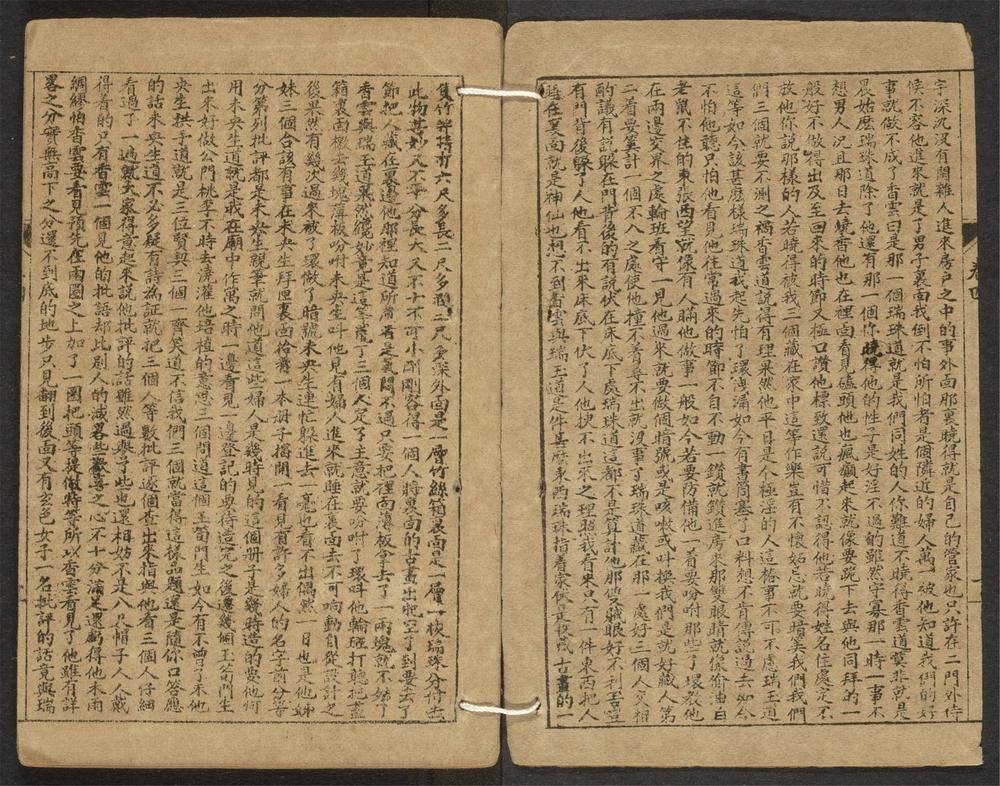 字深沉沒有閒雜人進來房戶之中的事外面那裏曉得就是自己的管家也只許在二門外侍
候不容他進來就是了男子裏面我倒不怕所怕者是個隣近的婦人萬一被他知道我們的好
事就做不成了香雲曰是那一個瑞珠道就是我們同姓的人你難道不曉得香雲道莫非就是
晨姑庅瑞珠道除了他還有那一個你曉得他的性子是好淫不過的雖然守寡那一時一事不
想男人况且那日去燒香他也在裡面看見磕頭他也瘋顛起來就像要跪下去與他同拜的一
般好不做得出及至回來的時節又極口讚他標致還說可惜不認得他若曉得姓名住處定不
放他你說那樣的人若曉得被我三個藏在家中這等作樂豈有不懷妬忌就要暗矣我們我
們三個就要不測之禍香雲道說得有理果然他平日是个極淫的人這樁事不可不慮瑞玉道
這等如今該甚麽樣瑞珠道我起先怕了環洩漏如今有書筒塞了口料想不肯傳說過去如今
不怕他聽只怕他看見他往常過來的時節不自不動一鑽就鑽進房來那雙眼睛就像偷油白
老鼠不住的東張西望就像有人瞞他做事一般如今若要防備他一着要吩咐那些了環教他
在兩邊交界之處輪班看守一見他過來就要做個暗號或是咳嗽或叫喚我們是就好藏人第
二着要算計一個不入之處使他撞不着尋不出就沒事了瑞珠道藏在那一處好三個人交相
酌議有說躱在門背後的有說伏在床底下處瑞珠道這都不是算計他那雙賊眼好不利害豈
有門背後躱了人他看不出來床底下伏了人他搜不出來之理照我看來只有一件東西把人
睡在裏面就是神仙也想不到香雲與瑞玉道是件甚麽東西瑞珠指着家伙是古畫的一
隻竹有六尺多長二尺多濶二尺多深外面是一層竹絲箱裏面是一層一板瑞珠分付去
此物甚妙又不等分長大又不十不可小剛剛容得一個人將裏面的古畫出吧空了到要去了
節把人藏在裏邊他那裡知道所有者是氣悶不過只要把裡面薄板拿去了一兩塊就不妨了
香雲與瑞玉道果然絕妙竟是這等三個人定了主意就要吩咐了環叫他輪班打聽把畫
箱裏面撤去幾塊薄板吩咐未央生叫他見有婦人進來就睡在裏面去不可响動自從設計之
後果然有幾次過來被了環做了暗號未央生連忙躱進去一毫也看不出偶然一日也是他姊
妹三個合該有事在未央生拜匣裏面拾着一本册子揭開一看見有許多婦人的名字前分等
分第列批評都是未央生親筆就問他道這些婦人是幾時見的這個册子是幾時造的要他何
用未央生道就是我在廟中作寓之時一邊看見一邊登記的要待造完之後邊幾個玉筍門生
出來好做公門桃李不時去澆灌他培植的意思三個問道這個玉筍門生如今有不曾了未
央生拱手道就是三位賢契三個一齊笑道不信我們三個就當得這樣品題還是隨你口答應
的話未央生道不必多疑有詩為証就把三個人等數批評逐個查出來指與他看三個人仔細
看過了一遍就大家得意起來說他批評的話雖然過舉了些也還相妨不是八尺帽子人人戴
得着的只有香雲一個見他的批語却比別人的減畧些之心不十分滿足還虧得他未雨
綢繆怕香雲要看見預先在兩圈之上加了一圈把頭等提做特等所以香雲看見了他雖有詳
畧之分實無高下之分還不到底的地步只見翻到後面又有玄色女子一名批評的話竟與瑞